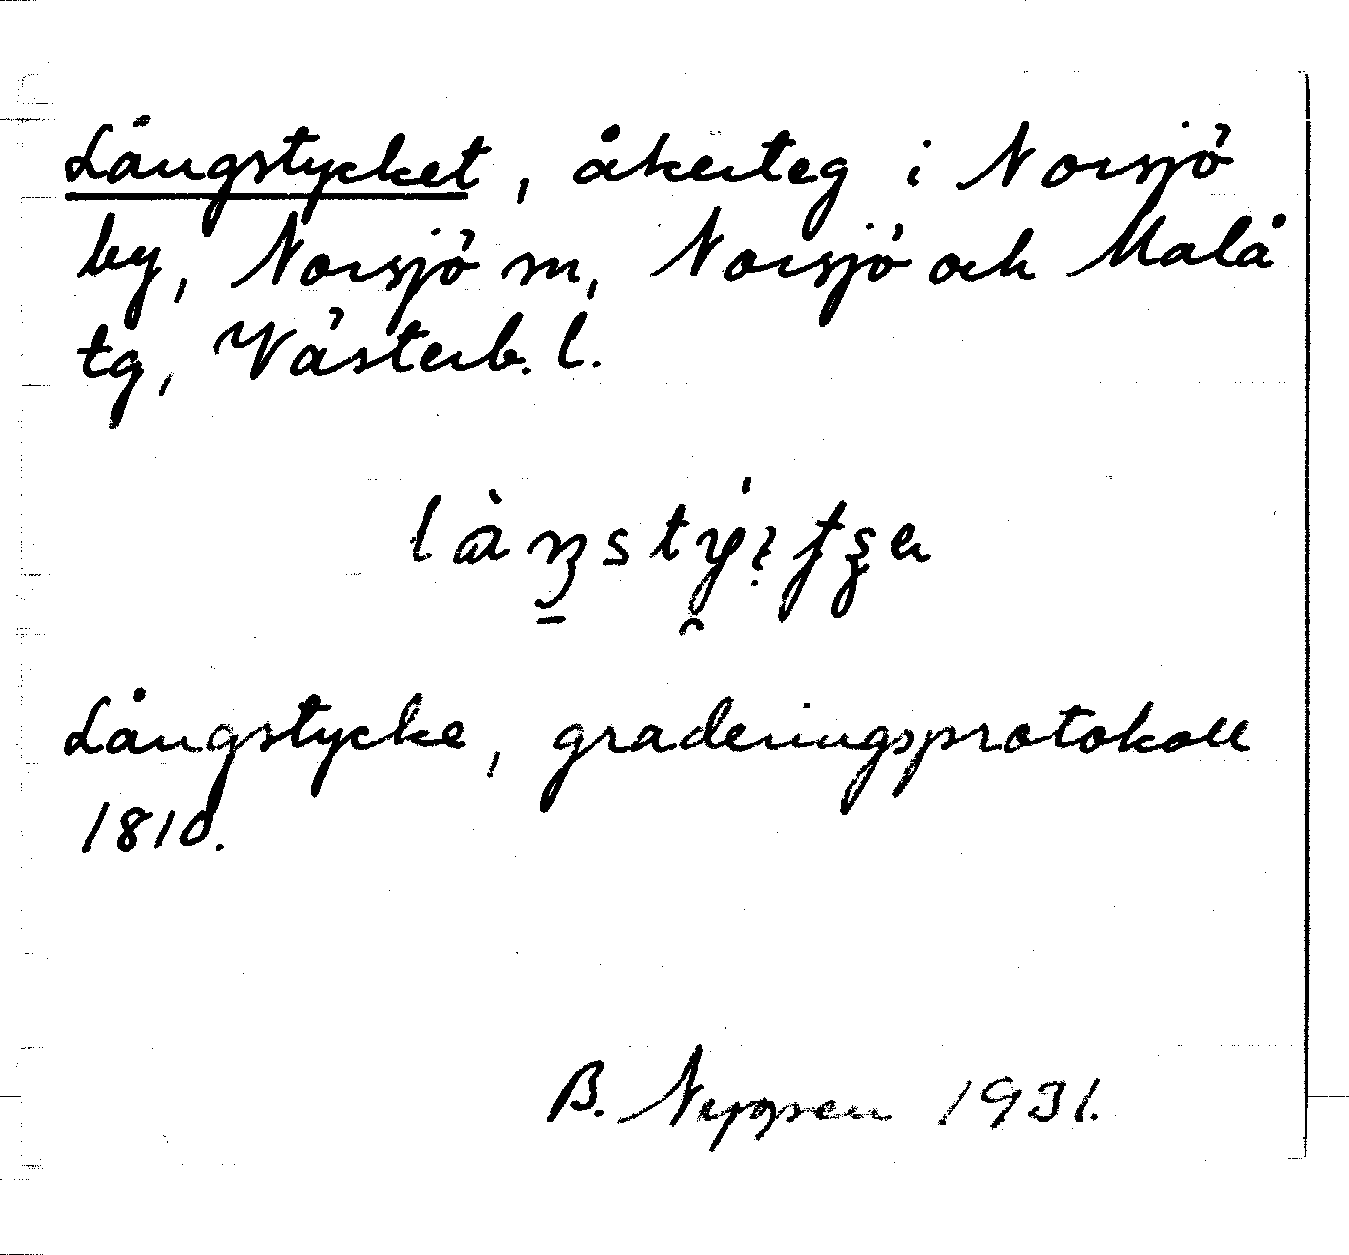 Långstycket, åkerteg i Norsjö
by, Norsjö sn, Norsjö och Malå
tg, Västerb. l.
Långstycke, graderingsprotokoll
1810.
B. Nygren 1931.